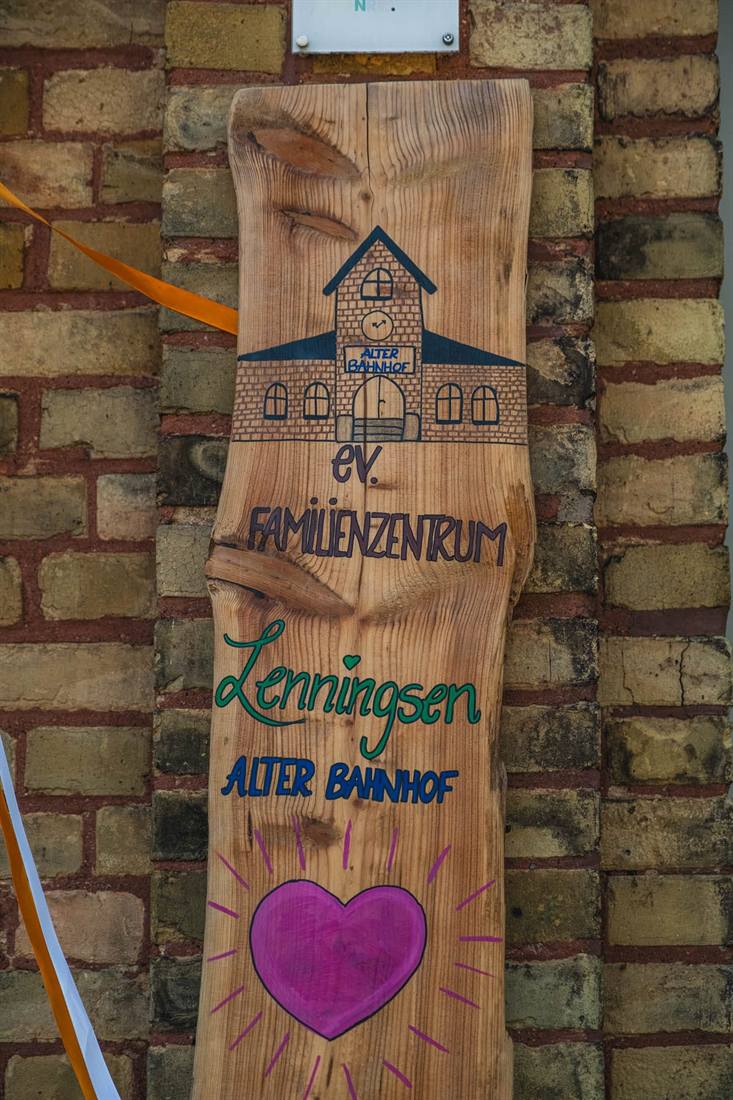 NR
ALTER
BAHNHOF
ev.
FAMILIENZENTRUM
Lenningsen
ALTER BAHNHOF